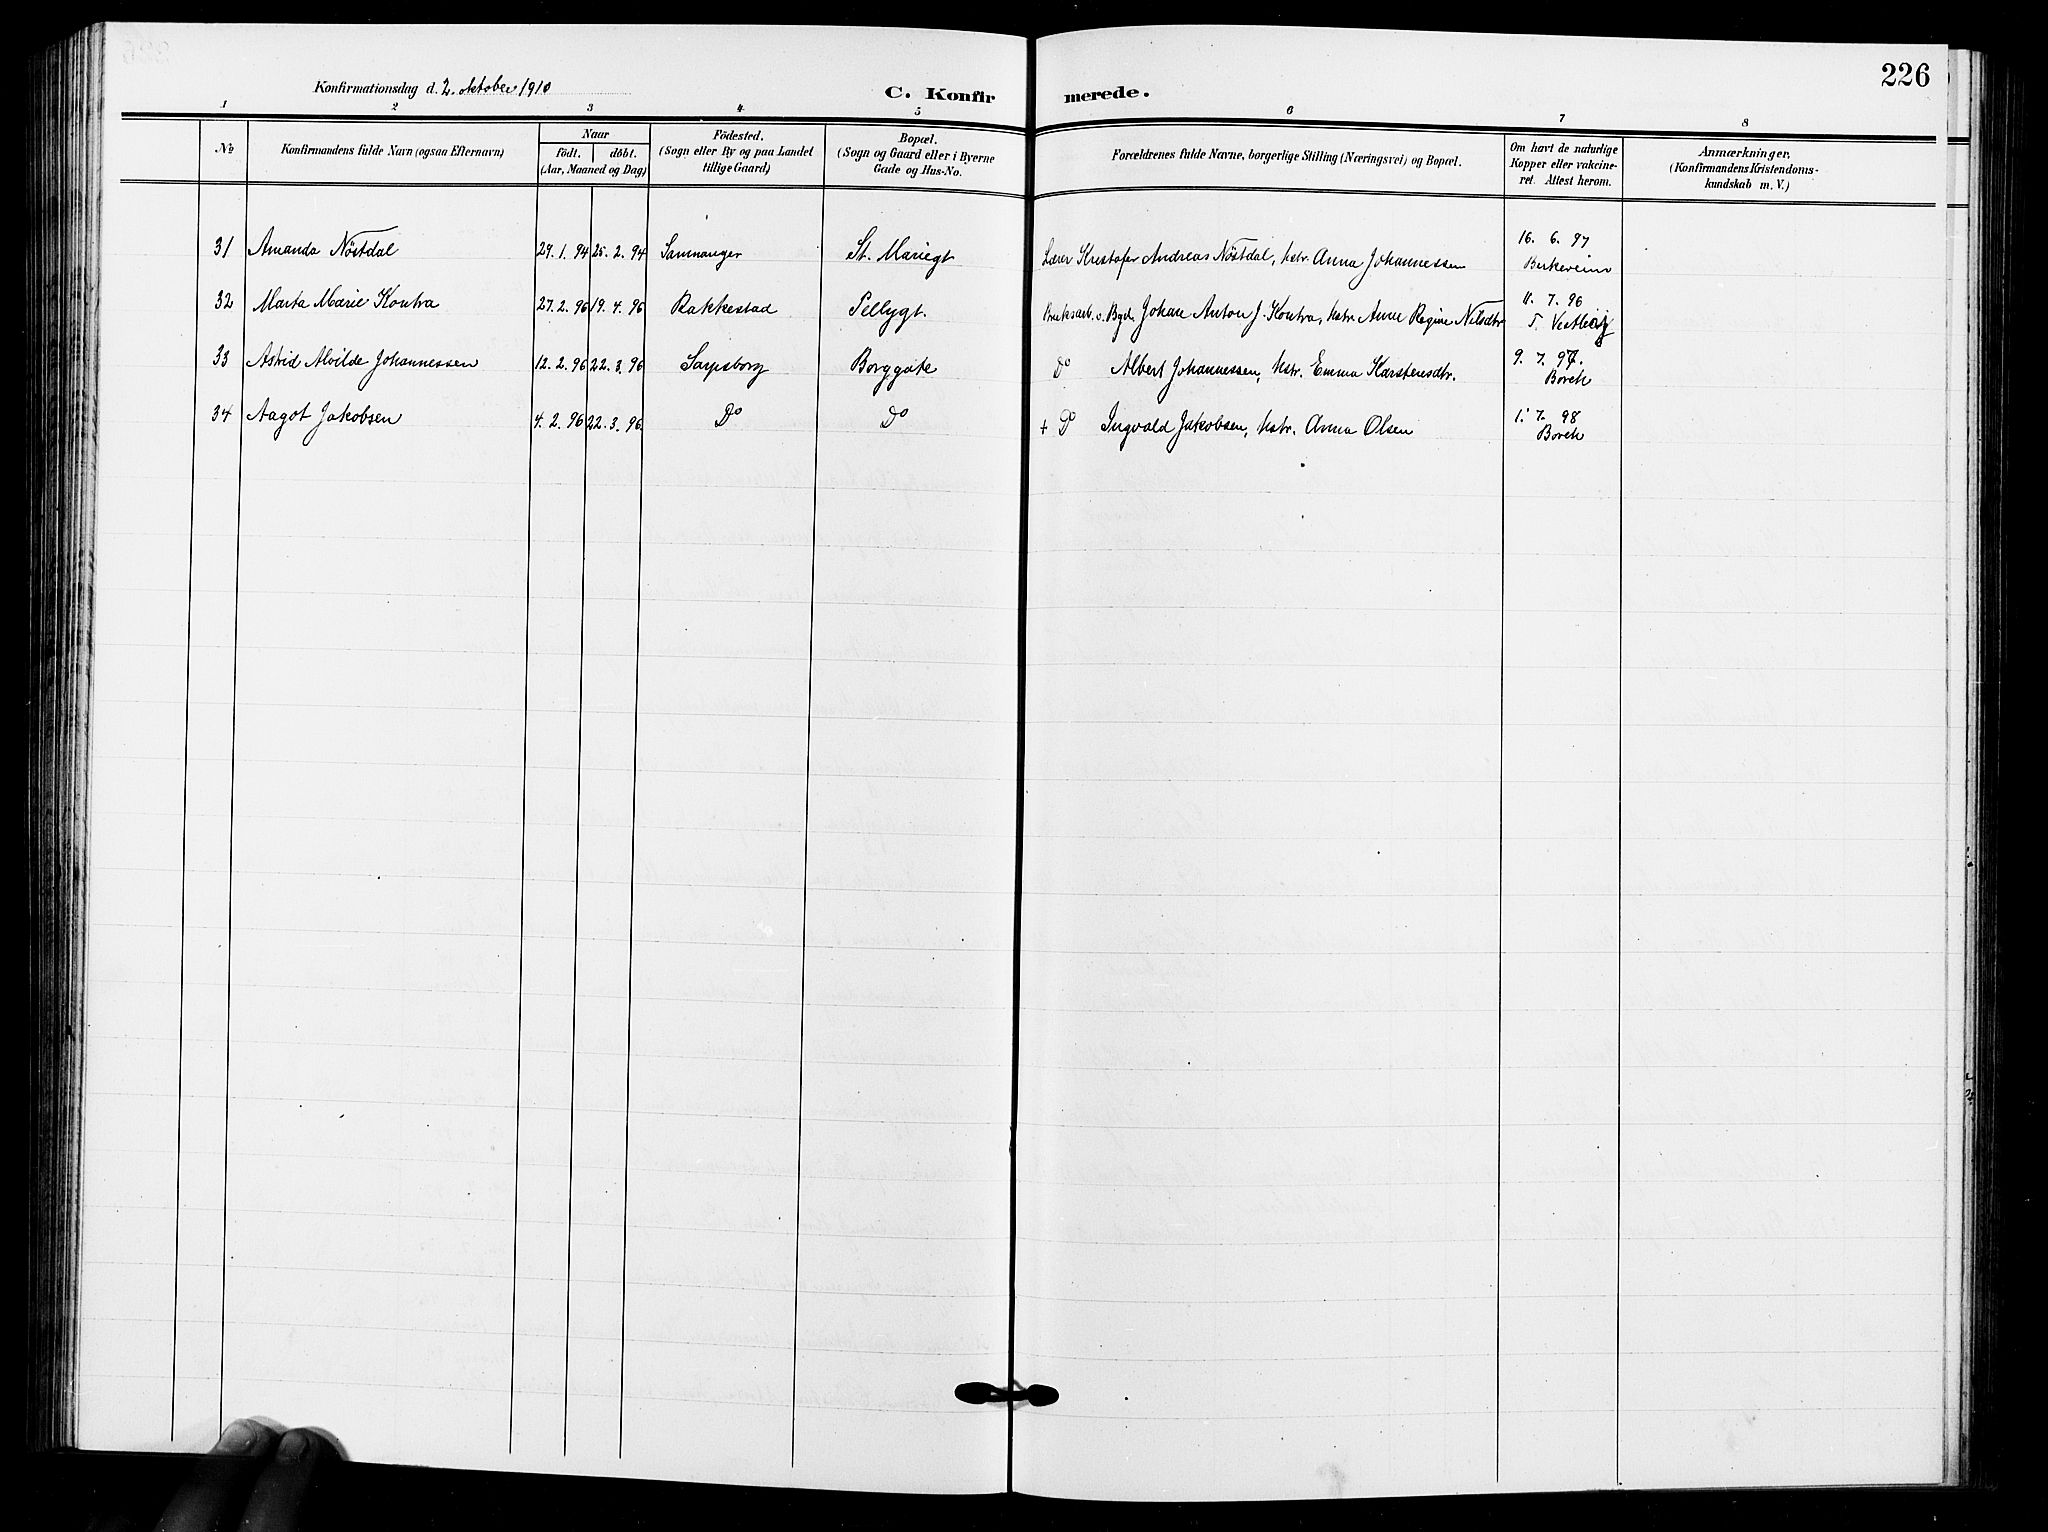 226
Konfirmationsdag d. 2. oktober 1910
C. Konfirmerede.
1 2 3 4 5 6 7 8
No
Konfirmandens fulde Navn (ogsaa Efternavn)
Naar
födt. döbt.
(Aar, Maaned og Dag)
Födested.
(Sogn eller By og paa Landet
tillige Gaard)
Bopæl.
(Sogn og Gaard eller i Byerne
Gade og Hus-No.
Forældrenes fulde Navne, borgerlige Stilling (Næringsvei) og Bopæl.
Om havt de naturlige
Kopper eller vakcine-
ret. Attest herom.
Anmærkninger,
(Konfirmandens Kristendoms-
kundskab m. V.)
31 Amanda Nöstdal 29. 1. 94 25. 2. 94 Samnanger St. Mariegt Lærer Kristofer Andreas Nöstdal, hstr. Anna Johannessen 16. 6. 97
32 Marta Marie Kontra 27. 2. 96 19. 4. 96 Rakkestad Pellygt. Bruksarb. o. Bgd. Johan Anton J. Kontra, hstr. Anne Regine Nilsdtr 11. 7. 96
33 Astrid Alvilde Johannessen 12. 2. 96 22. 3. 96 Sarpsborg Borggate Do Albert Johannessen, hstr. Emma Karstensdtr. 9. 7. 97.
Borch
34 Aagot Jakobsen 4. 2. 96 22. 3. 96. Do Do + Do Ingvald Jakobsen, hstr. Anna Olsen 1. 7. 98
Borch